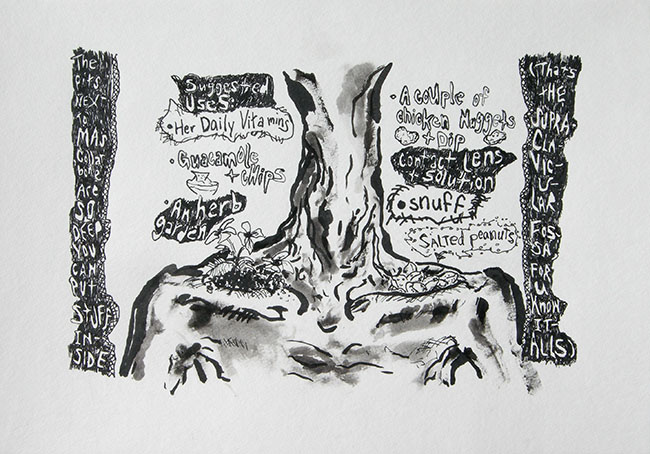 The
pits
NEX-
to
MAS
Collar
bones
Are
SO
DEEP
YOU
CAN
PUT
STUFF
IN-
SIDE
Suggested
Uses:
• Her Daily Vitamins
• Guacamole
+ chips
• An herb
garden
• A couple of
chicken Nuggets
+ Dip
contact lens
+ solution
• snuff
• SALTED peanuts
(That's
tHE
SUPRA
CLA
VIC
U-
LAR
FOS
SA
FOR
U
KNOW
IT
ALLS)